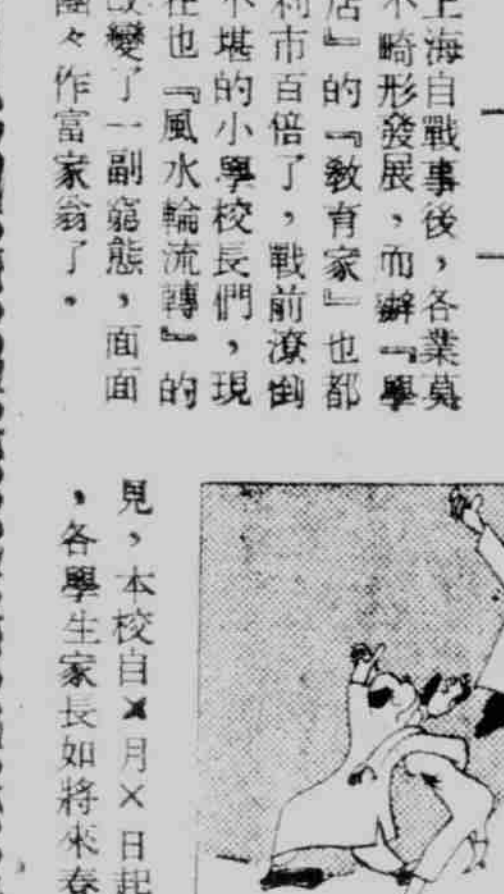 上海自戰事後，各業莫
不畸形發展，而辦『學
店』的『教育家』也都
利市百倍了，戰前潦倒
不堪的小學校長們，現
在也『風水輪流轉』的
改變了一副窮態，面面
團々作富家翁了。
見，本校自×月×日起
，各學生家長如將來春